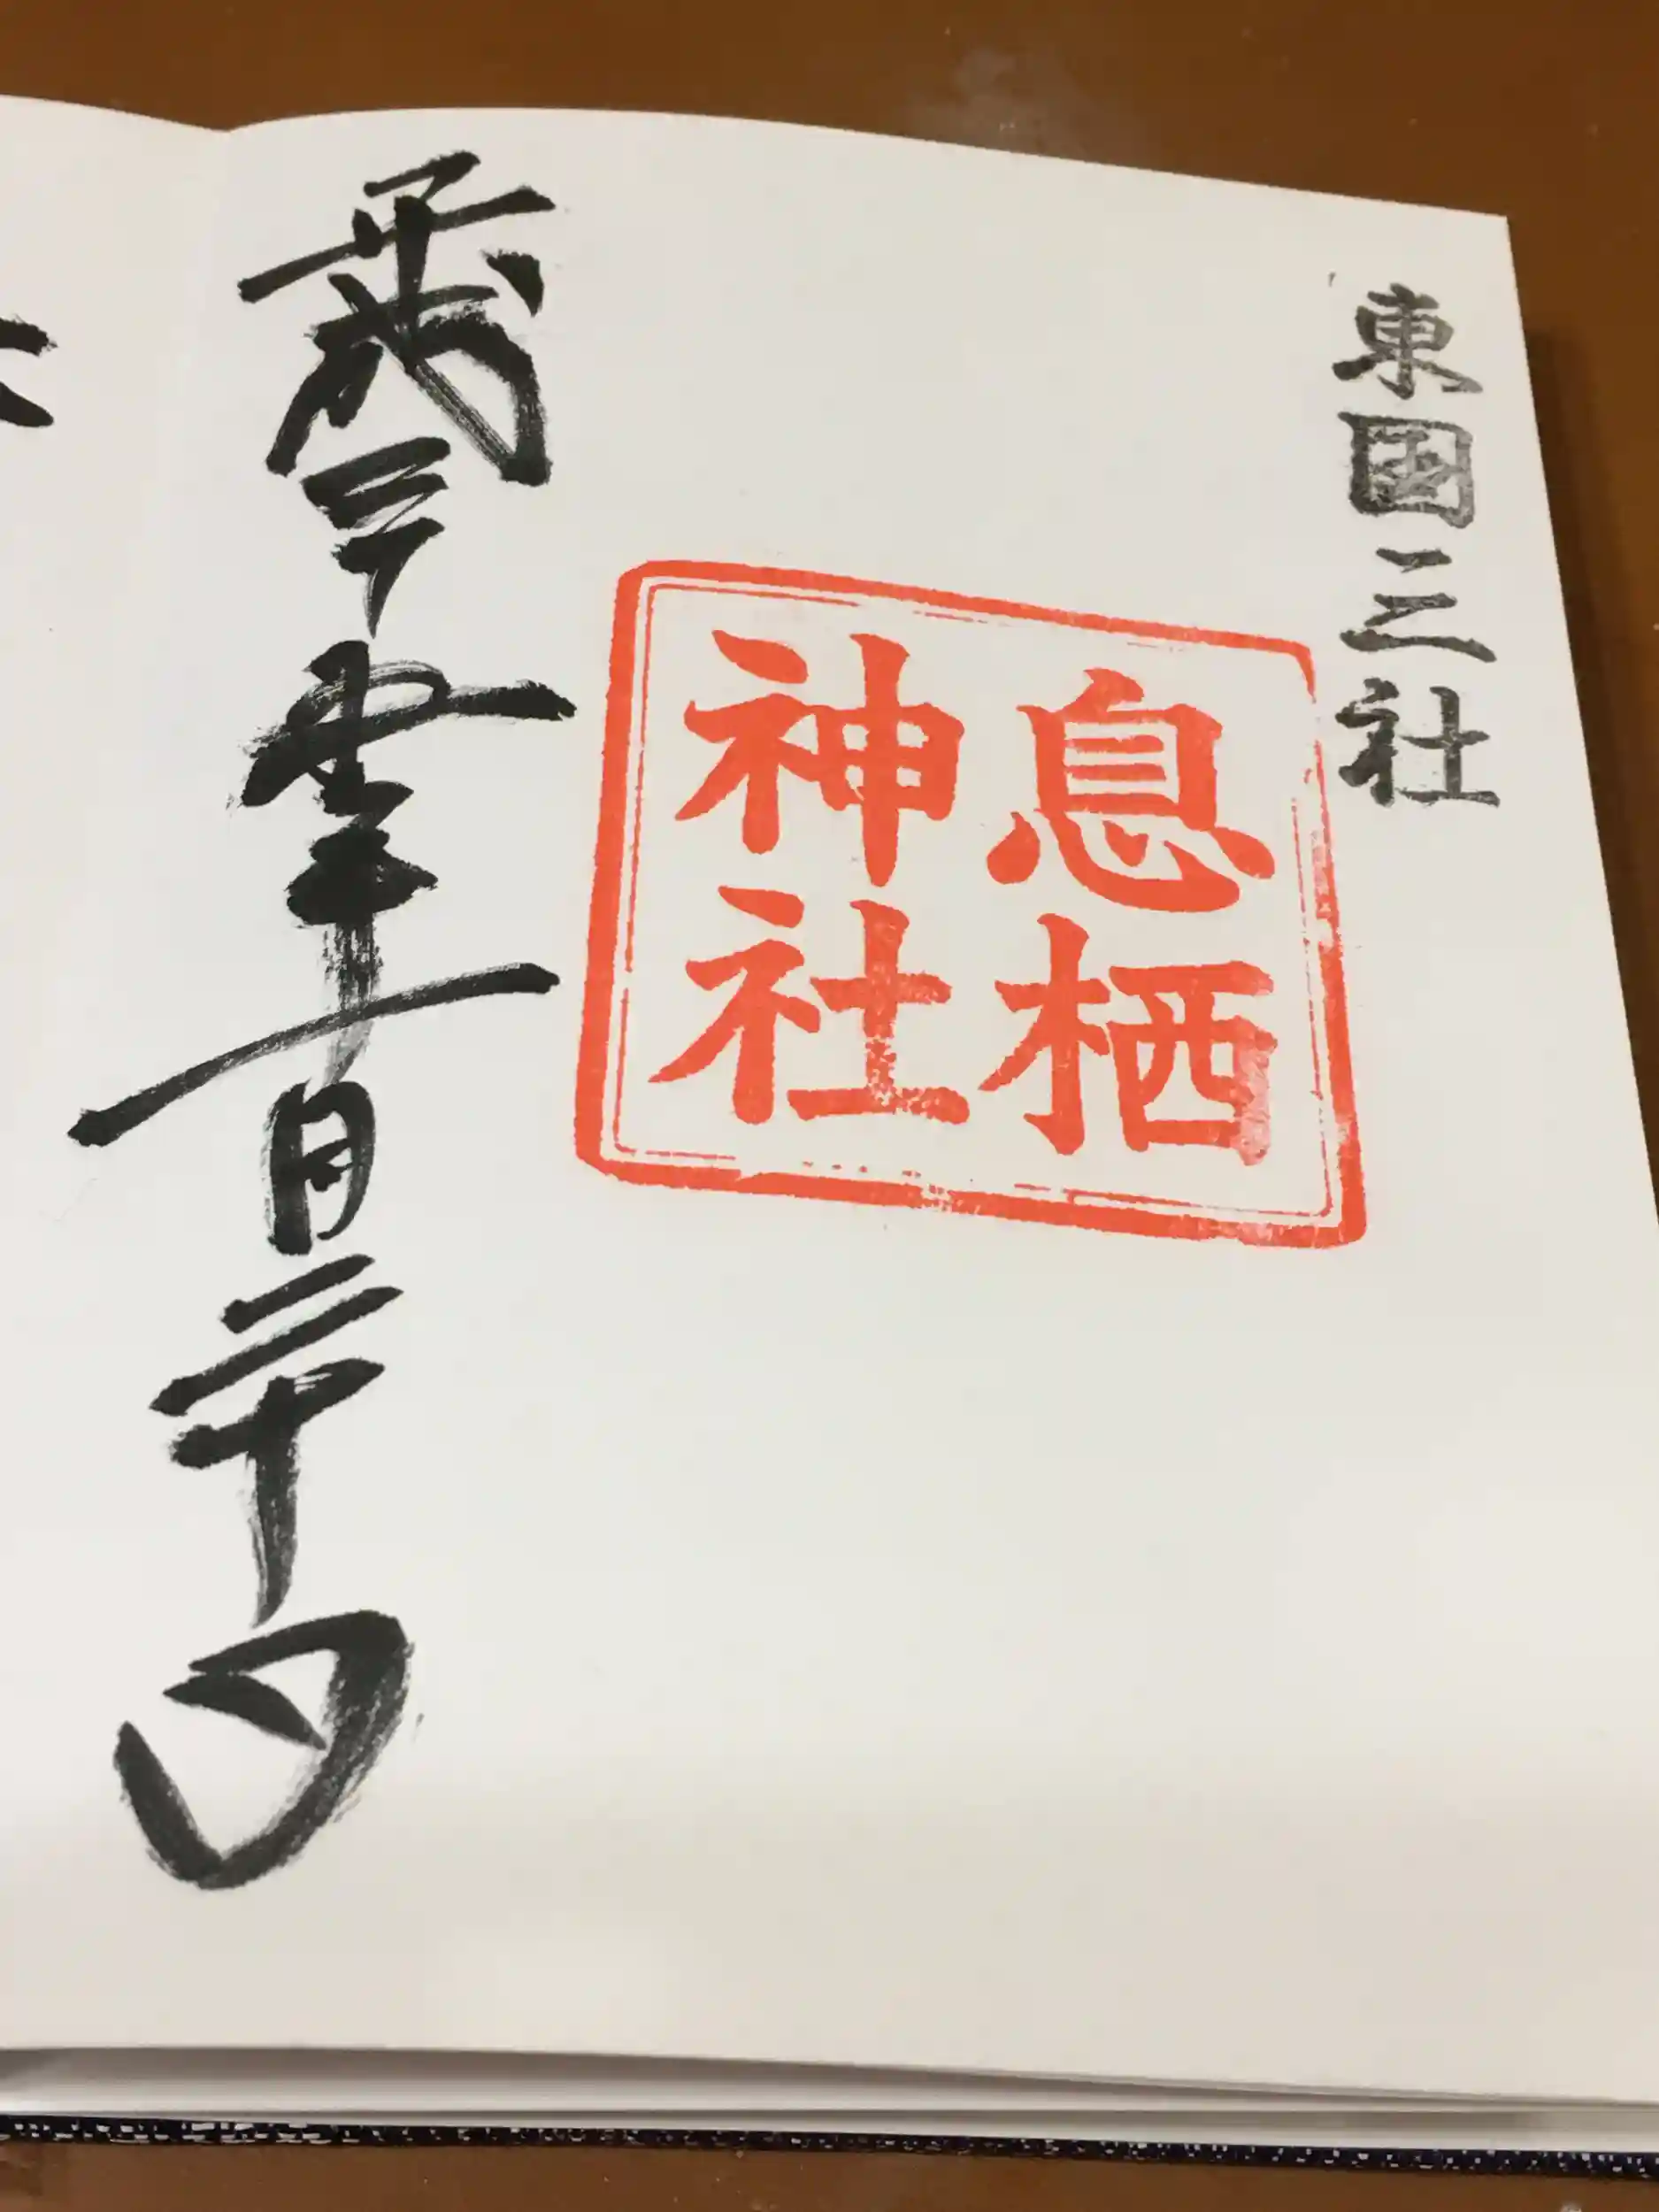 東国三社
息栖
神社
平成三十年 月二十日